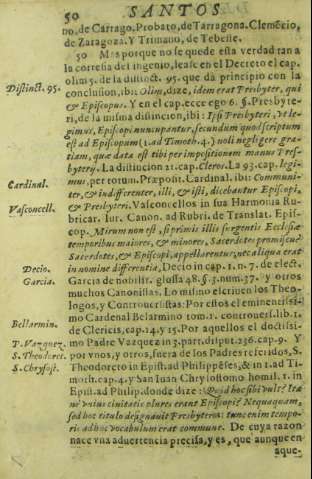 50 SANTOS
no, de Cartago, Probato, de Tarragona. Clemẽcio,
de Zaragoza. Y Trimano, de Tebeste.
50 Mas porque no se quede esta verdad ran a
la cortesia del ingenio, lease en el Decreto el cap.
Distinct. 95. olim 5. de la distinct. 95. que dà principio con la
conclusion, ibi: Olim, dize, idem erat Presbyter, qui
& Episcopus. Y en el cap. ecce ego 6. §. Presbyte-
ri, de la misma distincion, ibi: Ipsi Presbyteri, vt le-
gimus, Episcopi nuncupantur, secundum quod scriptum
est ad Episcopum (1. ad Timoth. 4.) noli negligere gra-
tiam, quæ data est tibi per impositionem manus Pres-
byterij. La distincion 21. cap. Cleros. La 93. cap. legi-
Cardinal. mus, per totum. Præposit. Cardinal. ibi: Communi-
ter, & indifferenter, illi, & isti, dicebantur Episcopi,
Vasconcell. & Presbyteri. Vasconcellos in sua Harmonia Ru-
bricar. Iur. Canon. ad Rubri. de Translat. Epis-
cop. Mirum non est, si primis illis surgentis Ecclesiæ
temporibus maiores, & minores, Sacerdotes promiscuè
Sacerdotes, & Episcopi, appellarentur, nec aliqua erat
Decio. in nomine differentia, Decio in cap. 1. n. 7. de elect.
Garcia. Garcia de nobilit. glossa 48. §. 3. num. 37. y otros
muchos Canonistas. Lo mismo escriuen los Theo-
logos, y Controuersistas: Por estos el eminentissi-
Bellarmin. mo Cardenal Belarmino tom. 1. controuers. lib. 1.
de Clericis, cap. 14. y 15. Por aquellos el doctissi-
P. Vazquez. mo Padre Vazquez in 3. part. disput. 236. cap. 9. Y
S. Theodoret. por vnos, y otros, fuera de los Padres referidos, S.
S. Chrysost. Theodoreto in Epist. ad Philippēses, & in 1. ad Ti-
moth. cap. 4. y San Iuan Chrysostomo homil. 1. in
Epist. ad Philip. donde dize: Quid hoc sibi vult?
vnius ciuitatis plures erant Episcopi? Nequaquam,
sed hoc titulo designauit Presbyteros: tunc enim tempo-
ris adhoc vocabulum erat commune. De cuya razon
nace vna aduertencia precisa, y es, que aunque en
aque-